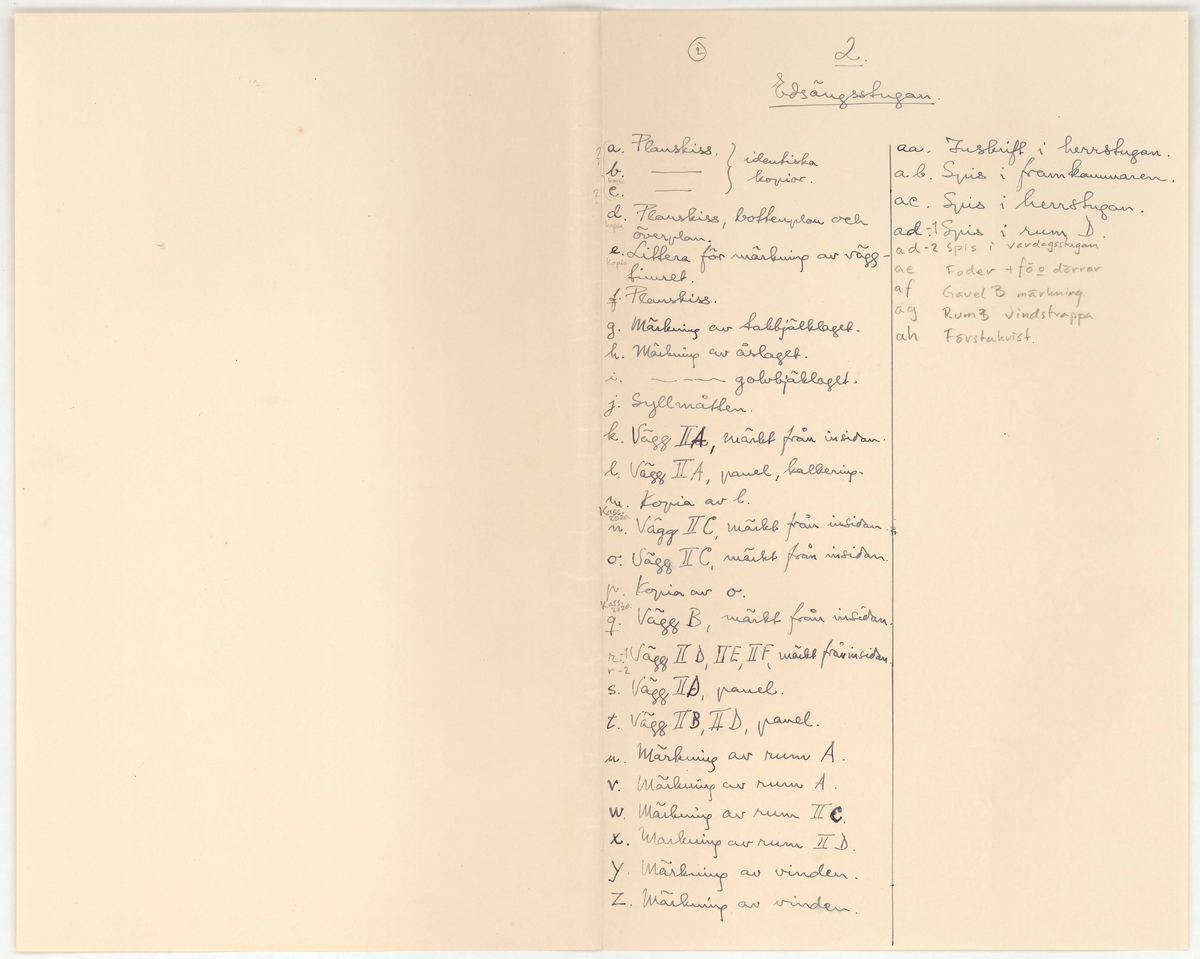 2
2.
Edsängsstugan.
a. Planskiss. } identiska
b. —— kopior.
kopia
c. ——
d. Planskiss, bottenplan och
kopia
överplan.
e. Littera för märkning av vägg-
kopia
timret.
f. Planskiss.
g. Märkning av takbjälklaget.
h. Märkning av åslaget.
i. —— golvbjäklaget.
j. Syllmåtten.
k. Vägg II A, märkt från insidan.
l. Vägg II A, panel, kalkering.
m. Kopia av l.
Kass.
n. Vägg II C, märkt från insidan.
o. Vägg II C, märkt från insidan.
p. Kopia av o.
Kass.
q. Vägg B, märkt från insidan.
r-1 Vägg II D, II E, II F, märkt från insidan.
r-2
s. Vägg II D, panel.
t. Vägg II B, II D, panel.
u. Märkning av rum A.
v. Märkning av rum A.
w. Märkning av rum II C.
x. Markning av rum II D.
y. Märkning av vinden.
z. Märkning av vinden.
aa. Inskrift i herrstugan.
ab. Spis i framkammaren.
ac. Spis i herrstugan.
ad-1 Spis i rum D.
ad-2 Spis i vardagsstugan
ae Foder + fö o dörrar
af Gavel B märkning
ag Rum B vindstrappa
ah Förstukvist.